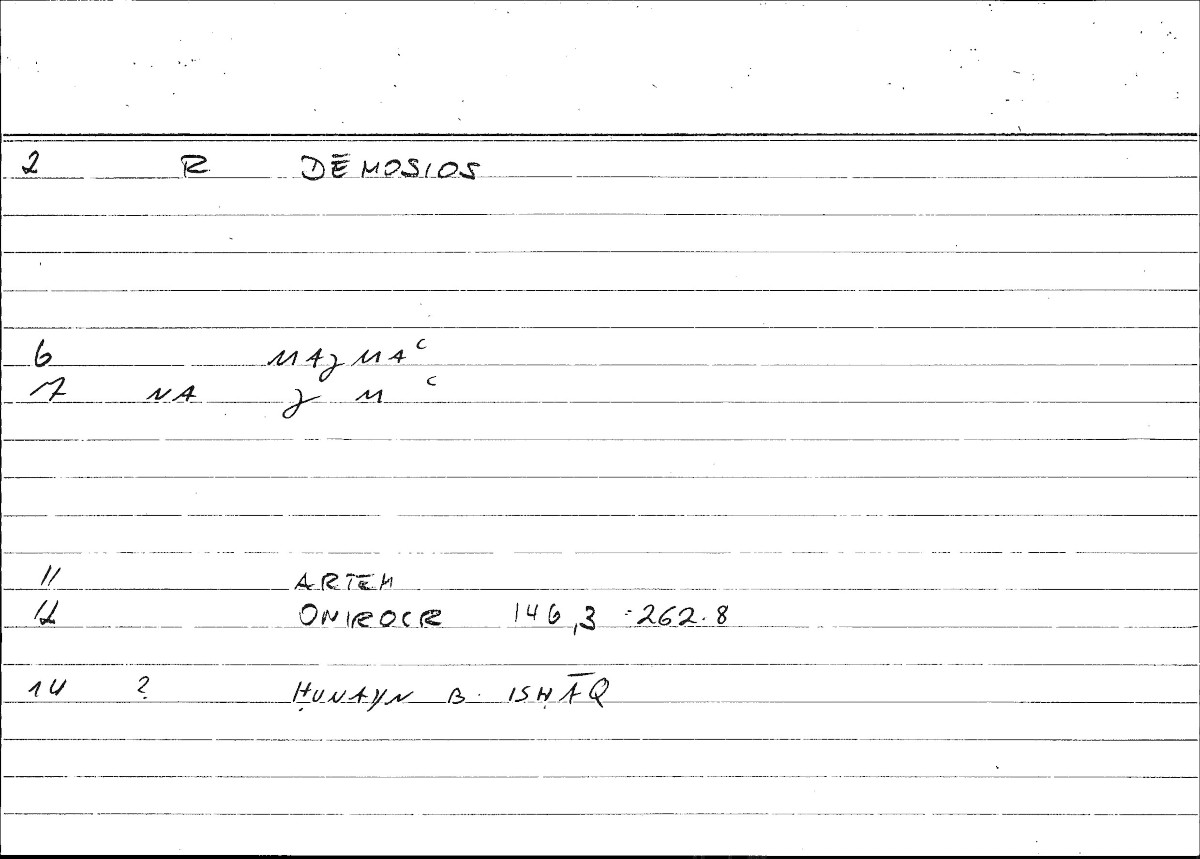 2 R DĒMOSIOS
6 MAJMAᶜ
7 NA J M ᶜ
11 ARTEM
12 ONIROCR 146,3 -262.8
14 ? ḤUNAYN B. ISḤĀQ